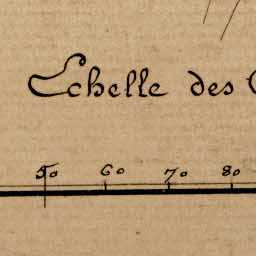 Echelle des
50 60 70 80